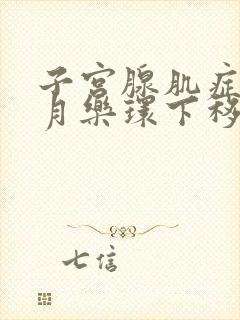 子宫腺肌症
月药环下移
七信